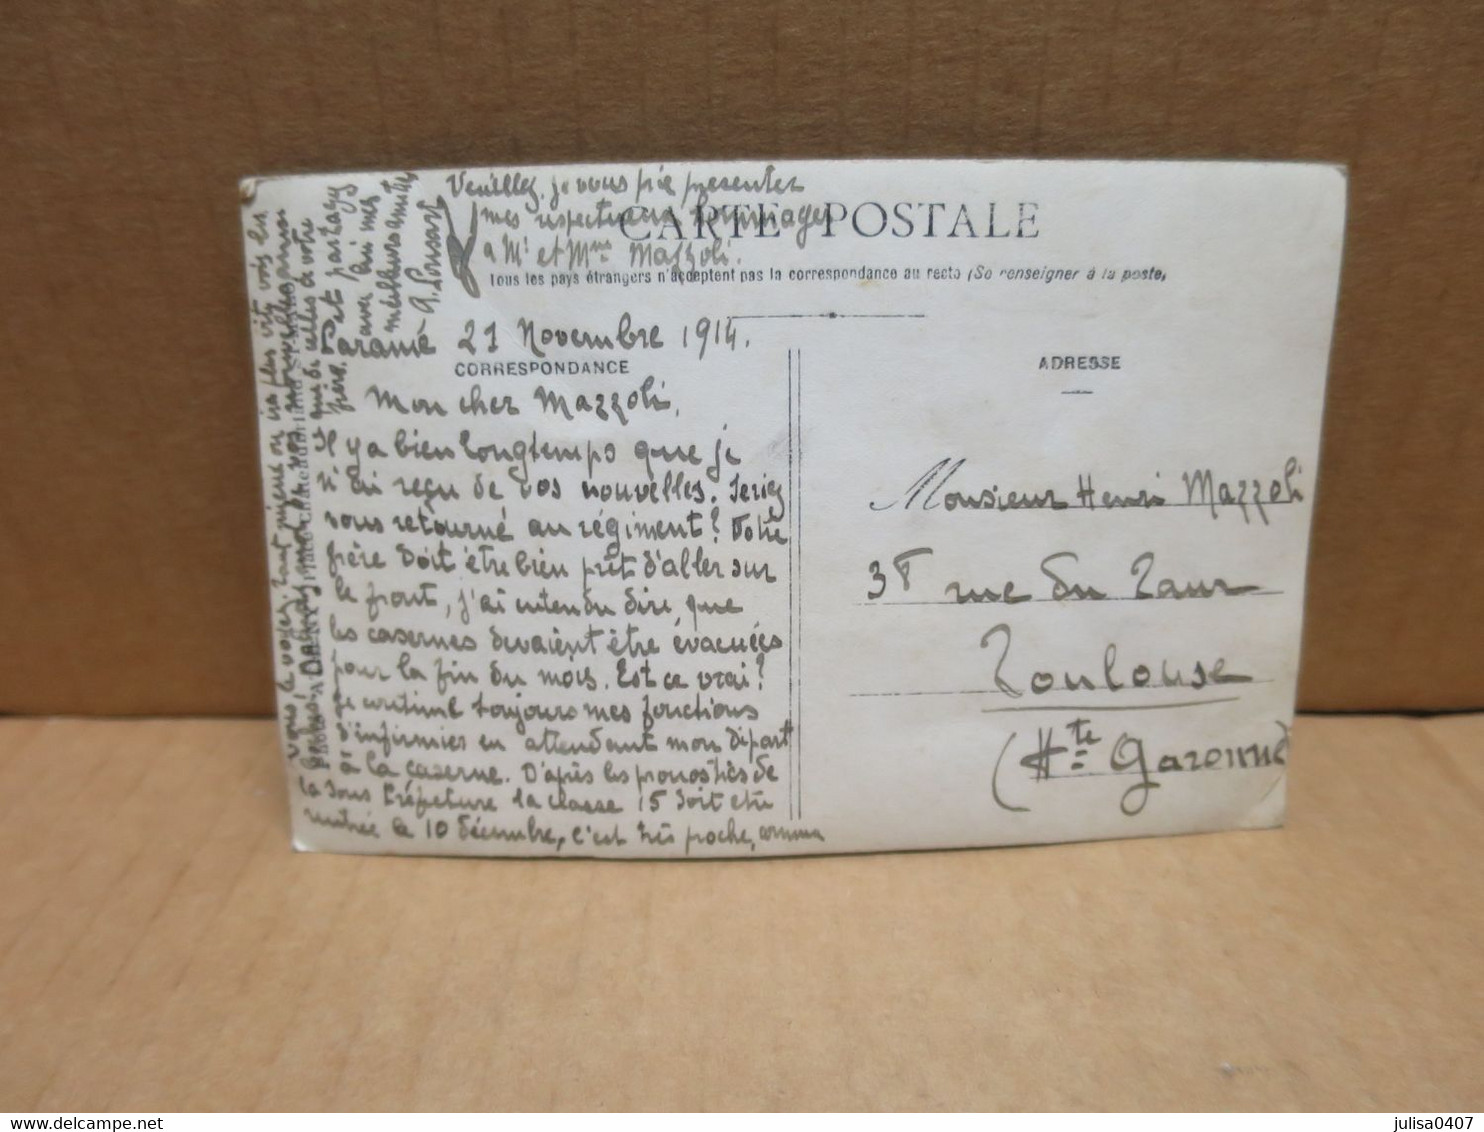 Veuillez, je vous prie presenter
mes respectueux hommages
à Mr et Mme Mazzoli.
CARTE POSTALE
Tous les pays étrangers n'acceptent pas la correspondance au recto (Se renseigner à la poste)
Paramé 21 Novembre 1914.
CORRESPONDANCE
Mon cher Mazzoli,
Il y a bien longtemps que je
n'ai reçu de vos nouvelles. Seriez
vous retourné au régiment? Votre
frère doit être bien prêt d'aller sur
le front, j'ai entendu dire, que
les casernes devaient être évacuées
pour la fin du mois. Est ce vrai?
Je continue toujours mes fonctions
d'infirmier en attendant mon départ
à la caserne. D'après les pronostics de
la Sous Préfecture la classe 15 doit etre
rentrée le 10 décembre, c'est très proche, comme
vous le voyez. Tant mieux on ira plus vite vois les
vos nouvelles ainsi
que de celles de votre
frère.
et partagez
avec lui mes
meilleures amitiés
ADRESSE
Monsieur Henri Mazzoli
38 rue du Taur
Toulouse
(Hte Garonne)
julisa0407